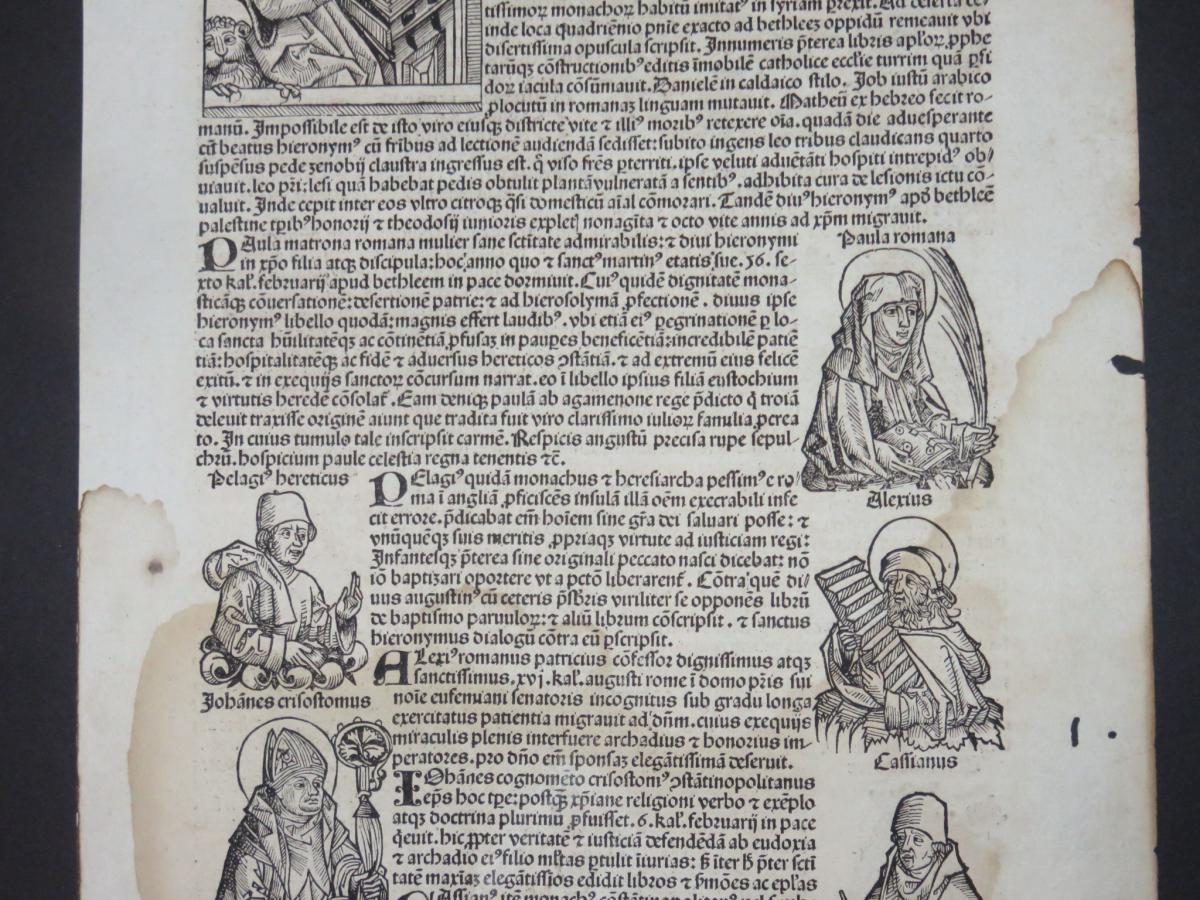 tissimoꝝ monachoꝝ habitū imitatꝰ in syriam ꝓrexit. Ad deserta de-
inde loca quadriēnio pnīe exacto ad bethleeʒ oppidū remeauit vbi
disertissima opuscula scripsit. Innumeris p̄terea libris apl̓oꝝ ꝓphe
taruꝫ cōstructionibꝰ editis īmobilē catholice eccl̓ie turrim quā ꝑfi
doꝝ iacula cōsūmauit. Danielē in caldaico stilo. Job iustū arabico
ꝓlocutū in romanaʒ linguam mutauit. Matheū ex hebreo fecit ro-
manū. Impossibile est de isto viro eiusqꝫ districte vite ⁊ illiꝰ moribꝰ retexere oīa. quadā die aduesperante
cū beatus hieronymꝰ cū fr̄ibus ad lectionē audiendā sedisset: subito ingens leo tribus claudicans quarto
suspēsus pede zenobij claustra ingressus est. q̇ viso fr̄es ꝑterriti. ipse veluti aduētāti hospiti intrepidꝰ ob/
uiauit. leo pr̄i: lesi quā habebat pedis obtulit plantā vulneratā a sentibꝰ. adhibita cura de lesionis ictu cō-
ualuit. Inde cepit inter eos vltro citroqꝫ q̇si domesticū aīal cōmorari. Tandē diuꝰ hieronymꝰ apđ bethleē
palestine tꝑibꝰ honorij ⁊ theodosij iunioris expletꝭ nonagīta ⁊ octo vite annis ad xp̄m migrauit.
PAula matrona romana mulier sane sctītate admirabilis: ⁊ diui hieronymi
in xp̄o filia atqꝫ discipula: hoc anno quo ⁊ sanctꝰ martinꝰ etatis sue .56. se-
xto kal̓. februarij apud bethleem in pace dormiuit. Cuiꝰ quidē dignitatē mona-
sticāqꝫ cōuersationē: desertionē patrie: ⁊ ad hierosolymā ꝓfectionē. diuus ipse
hieronymꝰ libello quodā: magnis effert laudibꝰ. vbi etiā eiꝰ ꝑegrinationē ꝑ lo-
ca sancta hūilitatēqꝫ ac cōtinētiā ꝓfusaʒ in pauꝑes beneficētiā: incredibilē patiē
tiā: hospitalitatēqꝫ ac fidē ⁊ aduersus hereticos ꝯstātiā. ⁊ ad extremū eius felicē
exitū. ⁊ in exequijs sanctoꝝ cōcursum narrat. eo ī libello ipsius filiā eustochium
⁊ virtutis heredē cōsolat̓. Eam deniqꝫ paulā ab agamenone rege p̄dicto q̇ troiā
deleuit traxisse originē aiunt que tradita fuit viro clarissimo iulioꝝ familia ꝓcrea
to. In cuius tumulo tale inscripsit carmē. Respicis angustū precisa rupe sepul-
chrū. hospicium paule celestia regna tenentis ⁊c̄.
Paula romana
Pelagiꝰ hereticus
PElagiꝰ quidā monachus ⁊ heresiarcha pessimꝰ e ro/
ma ī angliā ꝓficiscēs insulā illā oēm execrabili infe
cit errore. p̄dicabat em̄ hoīem sine gr̄a dei saluari posse: ⁊
vnūquēqꝫ suis meritis ꝓpriaqꝫ virtute ad iusticiam regi:
Infantesqꝫ p̄terea sine originali peccato nasci dicebat: nō
iō baptizari oportere vt a pctō liberarent̓. Cōtra quē di/
uus augustinꝰ cū ceteris p̄sb̄ris viriliter se opponēs librū
de baptismo paruuloꝝ: ⁊ aliū librum cōscripsit. ⁊ sanctus
hieronymus dialogū cōtra eū ꝑscripsit.
Alexius
ALexiꝰ romanus patricius cōfessor dignissimus atqꝫ
sanctissimus. xvj. kal̓. augusti rome ī domo pr̄is sui
noīe eufemiani senatoris incognitus sub gradu longa
exercitatus patientia migrauit ad dn̄m. cuius exequijs
miraculis plenis interfuere archadius ⁊ honorius im-
peratores. pro dn̄o em̄ sponsaʒ elegātissimā deseruit.
Johānes crisostomus
IOhānes cognomēto crisostomꝰ ꝯstātinopolitanus
ep̄s hoc tꝑe: postqꝫ xp̄iane religioni verbo ⁊ exēplo
atqꝫ doctrina plurimū ꝓfuisset. 6. kal̓. februarij in pace
q̇euit. hic ꝓpter veritatē ⁊ iusticiā defendēdā ab eudoxia
⁊ archadio eiꝰ filio ml̓tas ꝑtulit iīurias: s̄ īter h̄ p̄ter scti
tatē maxīaʒ elegātissīos edidit libros ⁊ s̓mōes ac ep̄las
Cassianus
CAssianꝰ itē monachꝰ